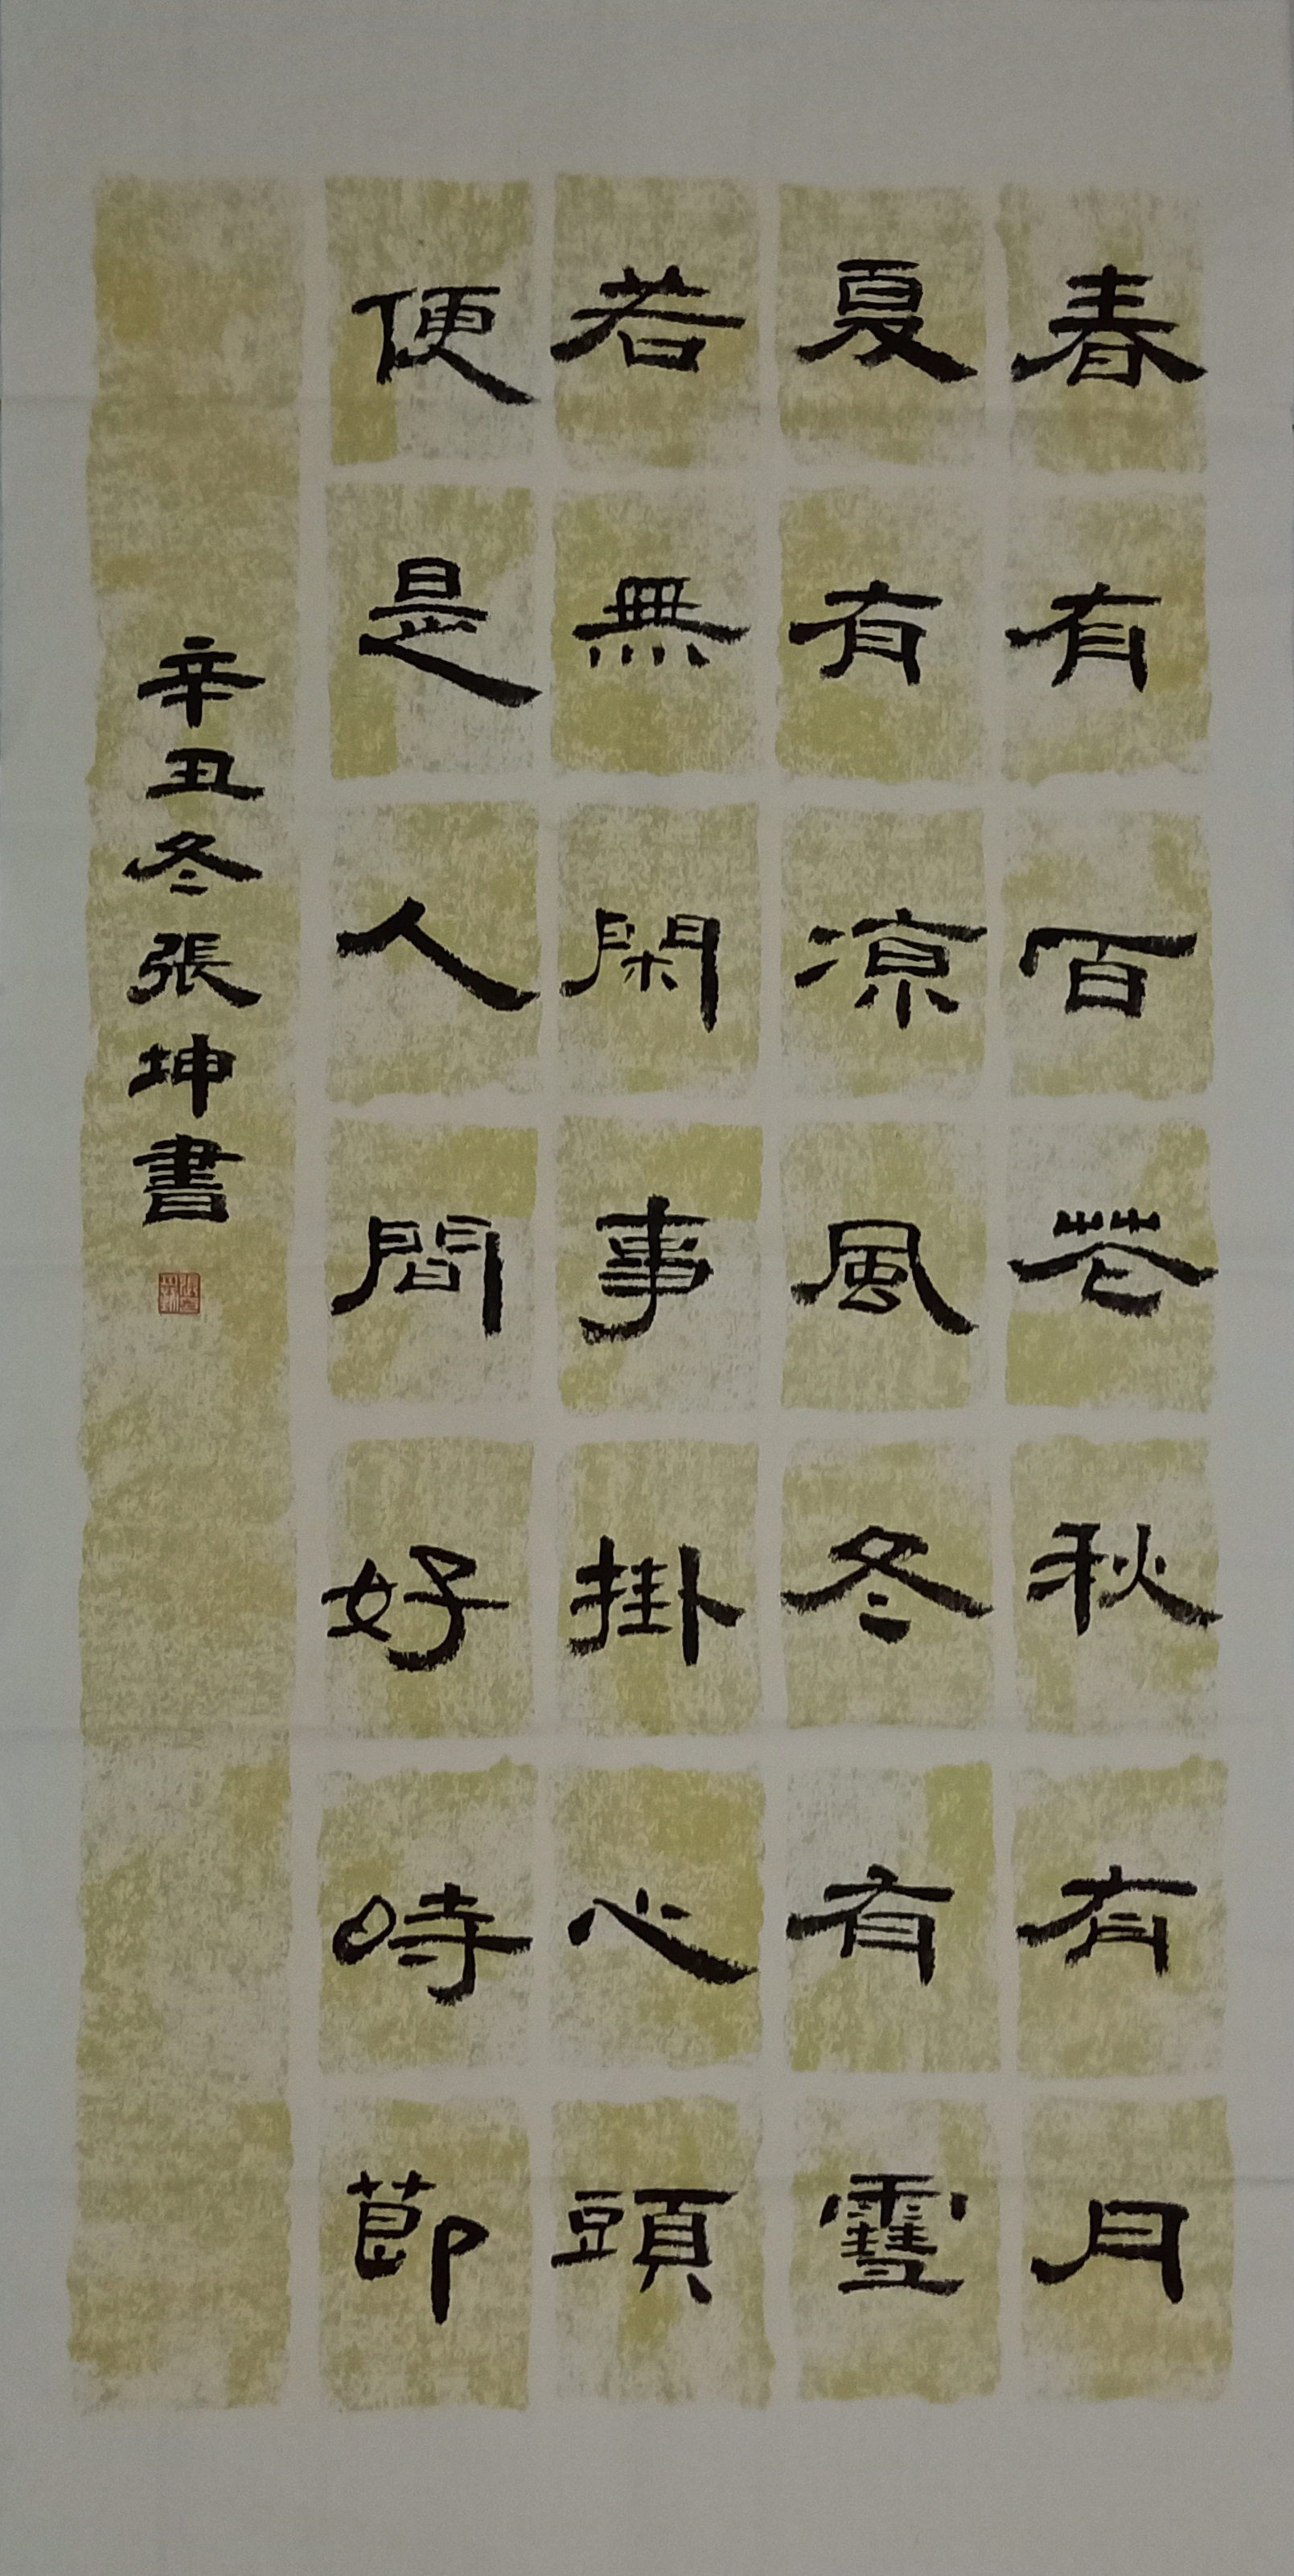 春有百花秋有月
夏有凉風冬有雪
若無閑事掛心頭
便是人間好時節
辛丑冬張坤書